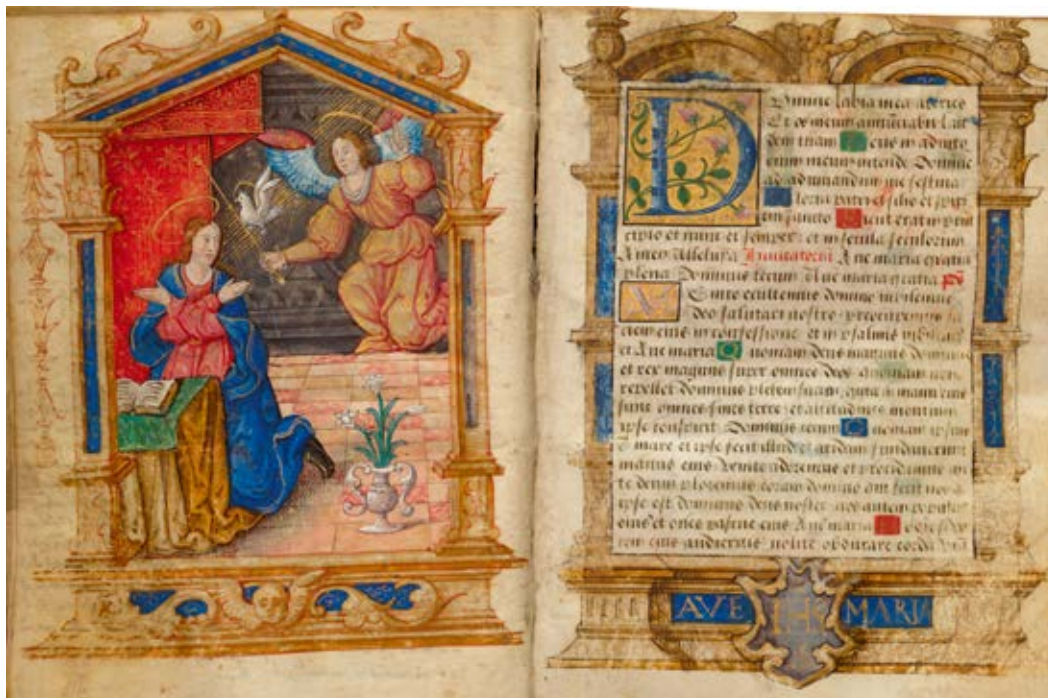 Domine labia mea aperies
Et os meum annuntiabit lau
dem tuam Deus in adiuto
rium meum intende Domine
ad adiuvandum me festina
Gloria patri et filio et spiri
tui sancto Sicut erat in prin
cipio et nunc et semper et in secula seculorum
Amen Alleluya Ave maria gratia
plena Dominus tecum Ave maria gratia
Venite exultemus domino iubilemus
deo salutari nostro preoccupemus fa
ciem eius in confessione et in psalmis
ei Ave maria Quoniam deus magnus
et rex magnus super omnes deos quoniam non
repellet dominus plebem suam quia in manu eius
sunt omnes fines terre et altitudines montium
ipse conspicit Dominus tecum Quoniam ipsius
est mare et ipse fecit illud et aridam
manus eius venite adoremus et procidamus an
te deum ploremus coram domino qui fecit nos
ipse est dominus deus noster nos autem
eius et oves pascue eius Ave maria Hodie si vo
cem eius audieritis nolite obdurare corda
AVE MARIA